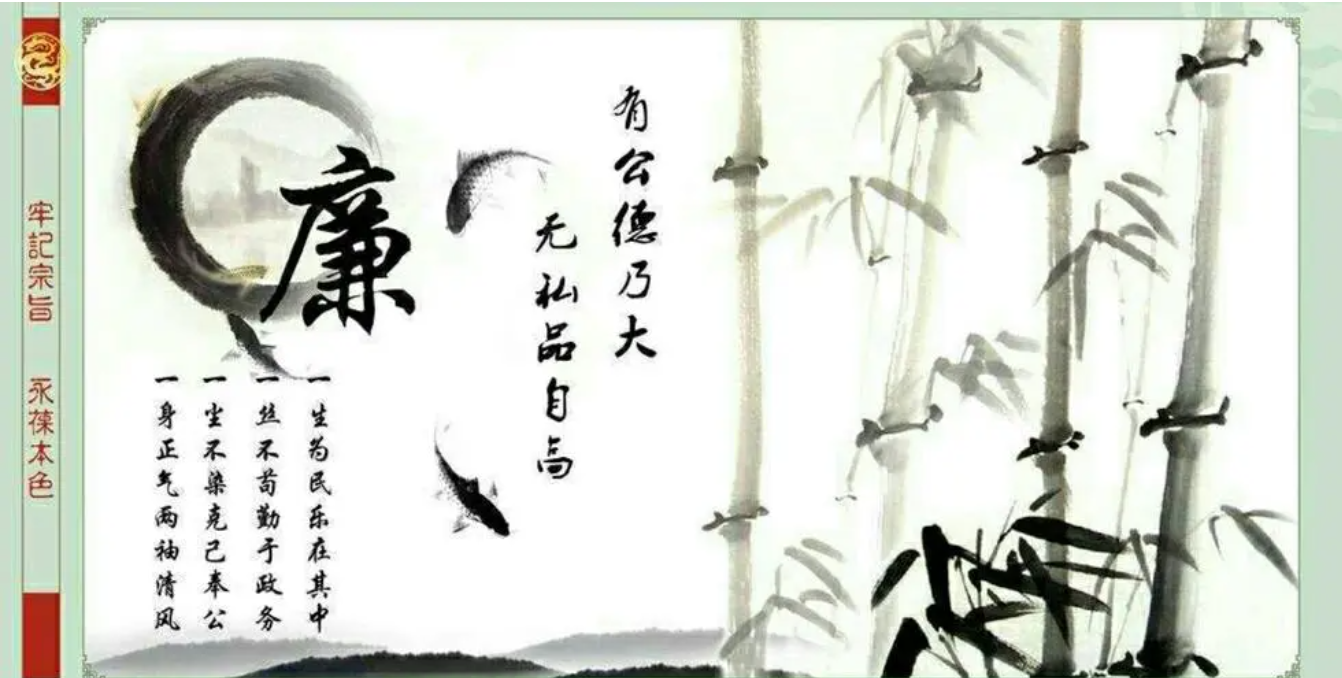 牢記宗旨
永葆本色
廉
有公德乃大
无私品自高
一生为民乐在其中
一丝不苟勤于政务
一尘不染克己奉公
一身正气两袖清风